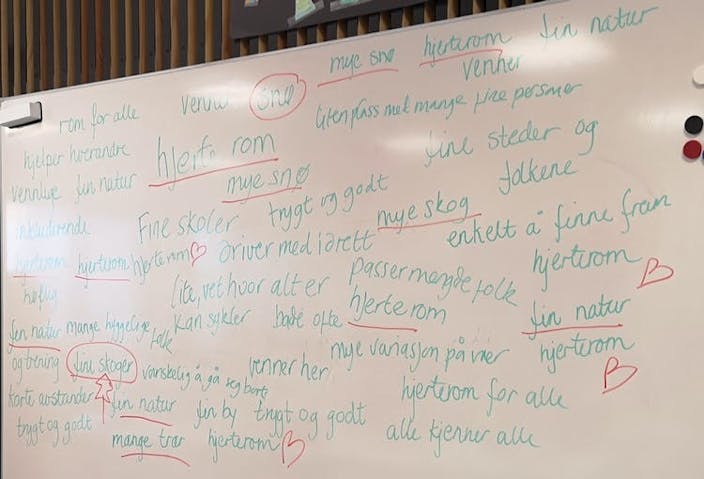 mye snø hjerterom fin natur
rom for alle venner snø venner
liten plass met mange fine personer
hjelper hverandre hjerte rom fine steder og
folkene
vennlige fin natur mye snø trygt og godt
inkluderende Fine skoler mye skog enkelt å finne fram
hjerterom hjerterom hjerterom driver med idrett hjerterom
høflig lite, vet hvor alt er passer mengde folk
fin natur mange hyggelige folk kan sykler bade ofte hjerte rom fin natur
og trening fine skoger venner her mye variasjon på vær hjerterom
vanskelig å gå seg bort
korte avstander fin natur fin by trygt og godt hjerterom for alle
trygt og godt mange trær hjerterom alle kjenner alle